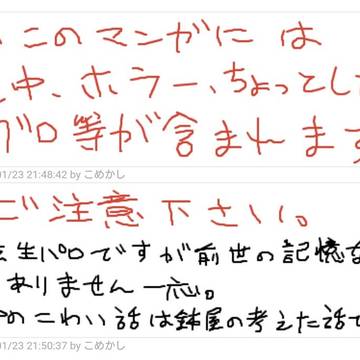 このマンガには
中、ホラー、ちょっとし
グロ等が含まれます
01/23 21:48:42 by こめかし
ご注意下さい。
生パロですが前世の記憶な
ありません一応。
のこわい話は鉢屋の考えた話で
01/23 21:50:37 by こめかし